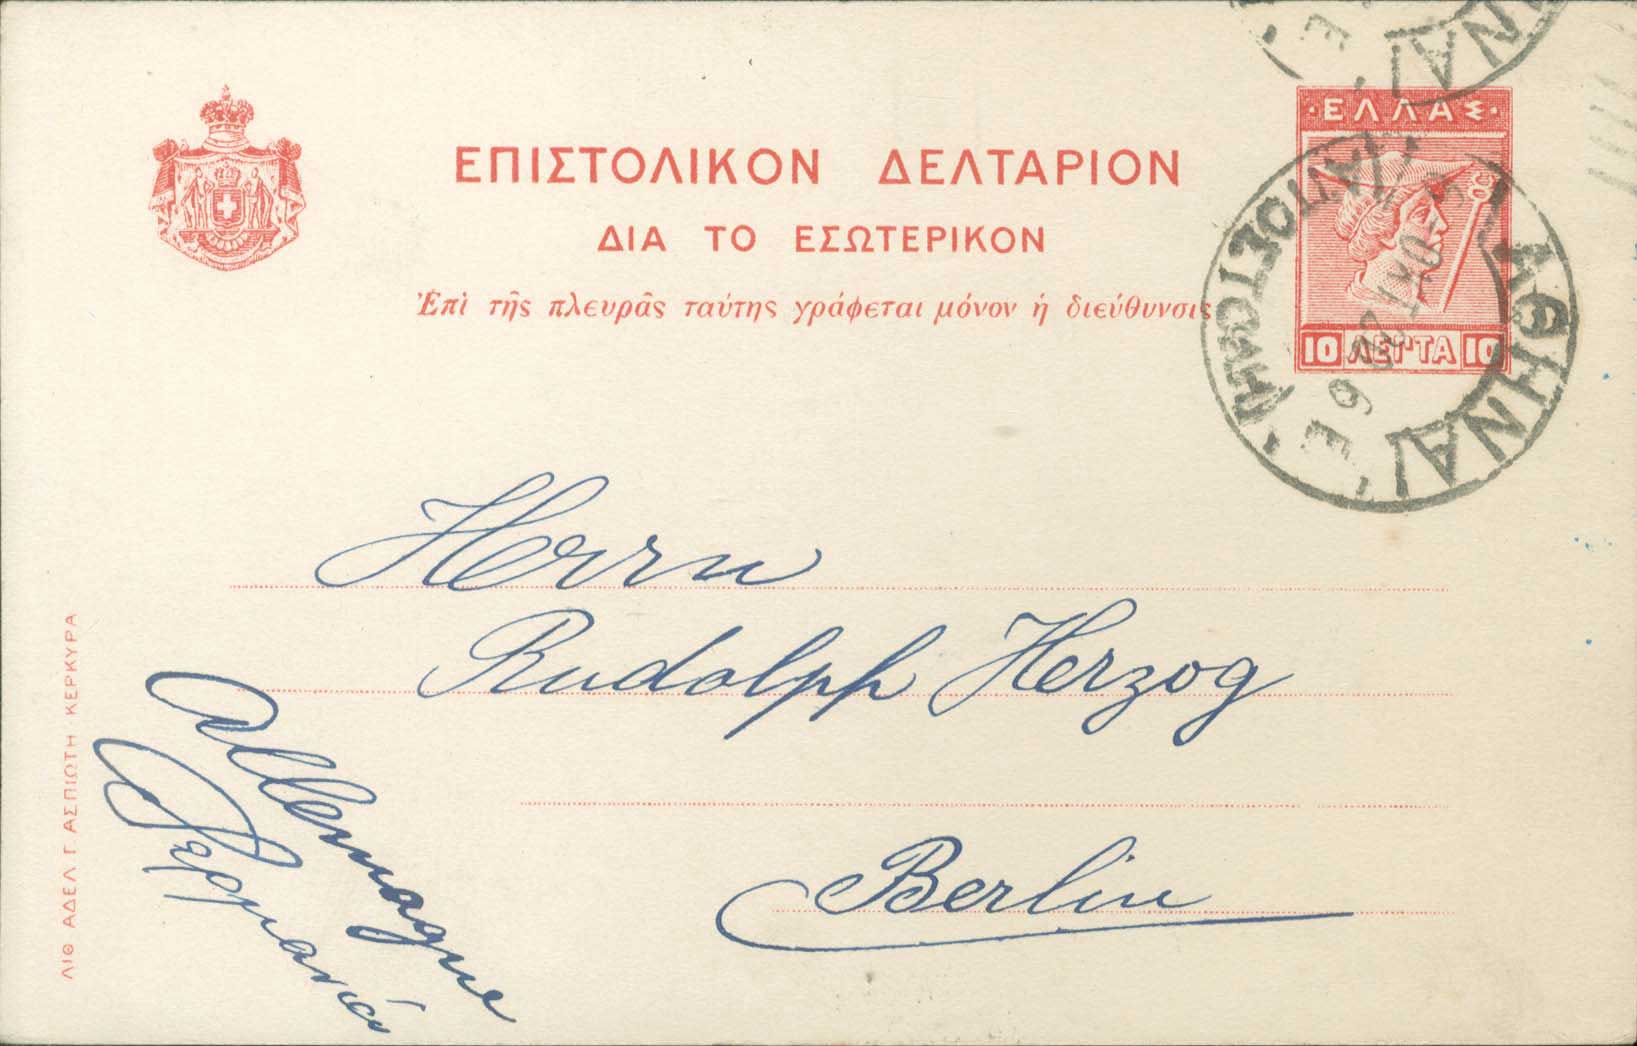 ΕΠΙΣΤΟΛΙΚΟΝ ΔΕΛΤΑΡΙΟΝ
ΔΙΑ ΤΟ ΕΣΩΤΕΡΙΚΟΝ
Ἐπὶ τῆς πλευρᾶς ταύτης γράφεται μόνον ἡ διεύθυνσις
·ΕΛΛΑΣ·
10 ΛΕΠΤΑ 10
ΑΘΗΝΑΙ
Herrn
Rudolph Herzog
Berlin
Allemagne
Γερμανία
ΛΙΘ ΑΔΕΛ Γ. ΑΣΠΙΩΤΗ ΚΕΡΚΥΡΑ